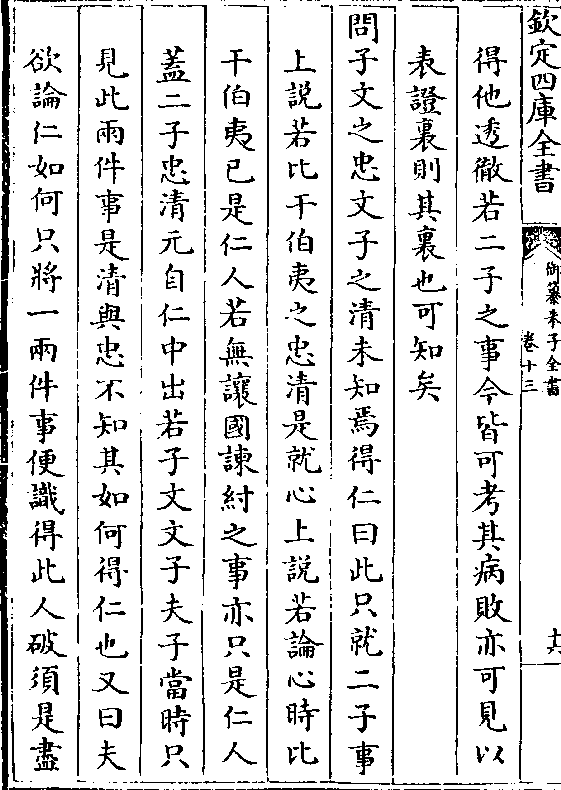 欽定四庫全書
御纂朱子全書
卷十三
十六
得他透徹若二子之事今皆可考其病敗亦可見以
表證裏則其裏也可知矣
問子文之忠文子之清未知焉得仁曰此只就二子事
上說若比干伯夷之忠清是就心上說若論心時比
干伯夷已是仁人若無讓國諫紂之事亦只是仁人
葢二子忠清元自仁中出若子文文子夫子當時只
見此兩件事是清與忠不知其如何得仁也又曰夫
欲論仁如何只將一兩件事便識得此人破須是盡